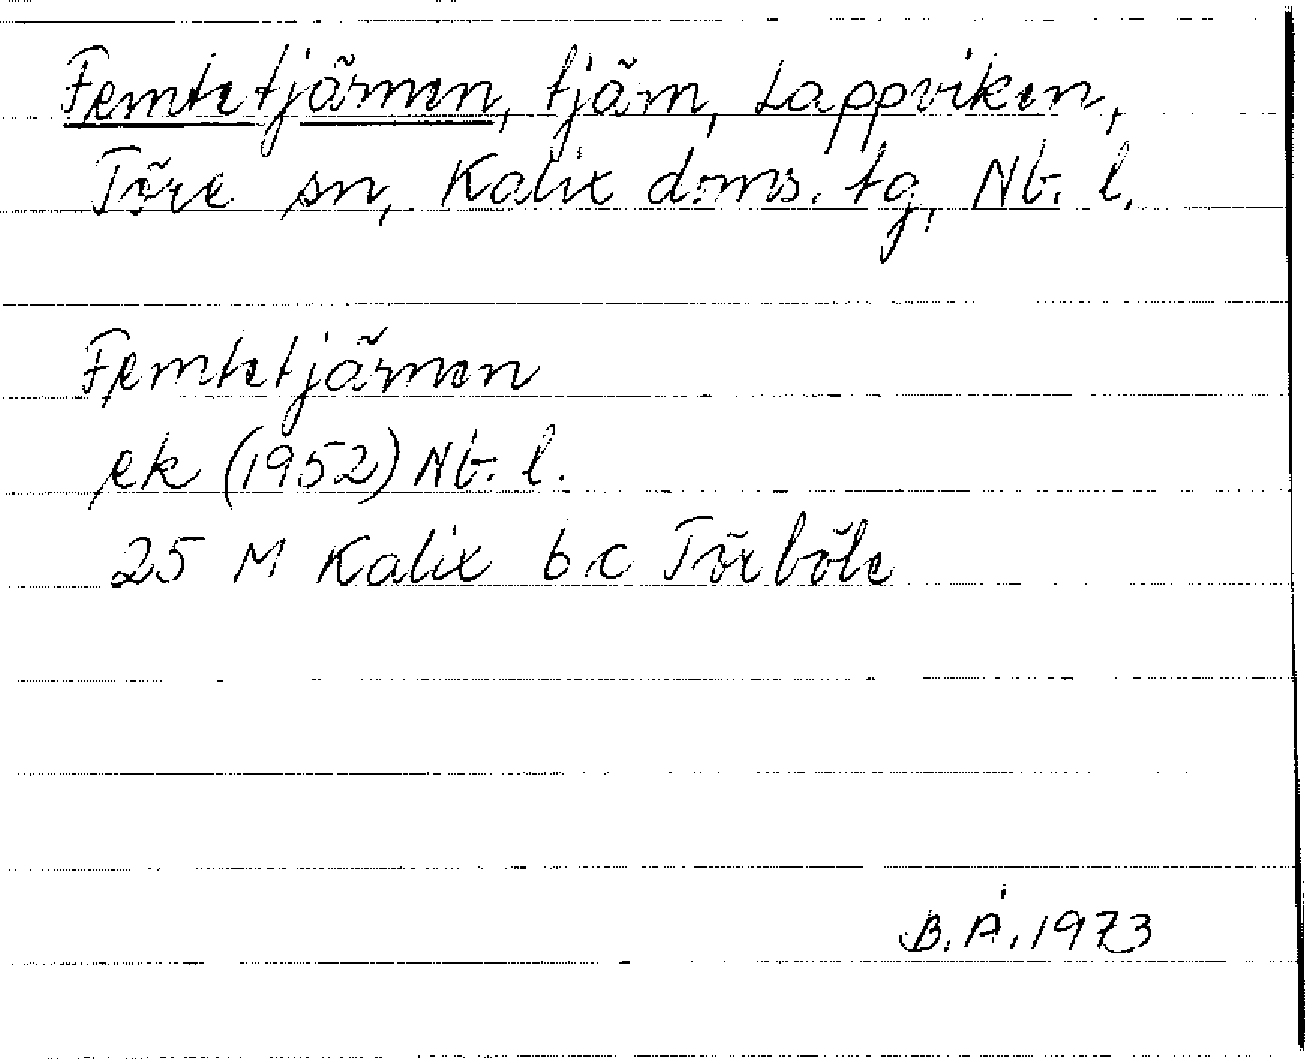 Femtetjärnen, tjärn, Lappviken,
Töre sn, Kalix doms. tg, Nb. l.
Femtetjärnen
ek (1952) Nb. l.
25 M Kalix 6 c Törböle
B. Å. 1973